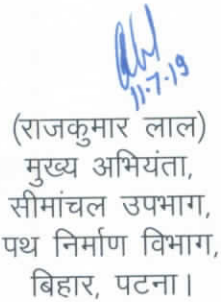 11.7.19
(राजकुमार लाल)
मुख्य अभियंता,
सीमांचल उपभाग,
पथ निर्माण विभाग,
बिहार, पटना।